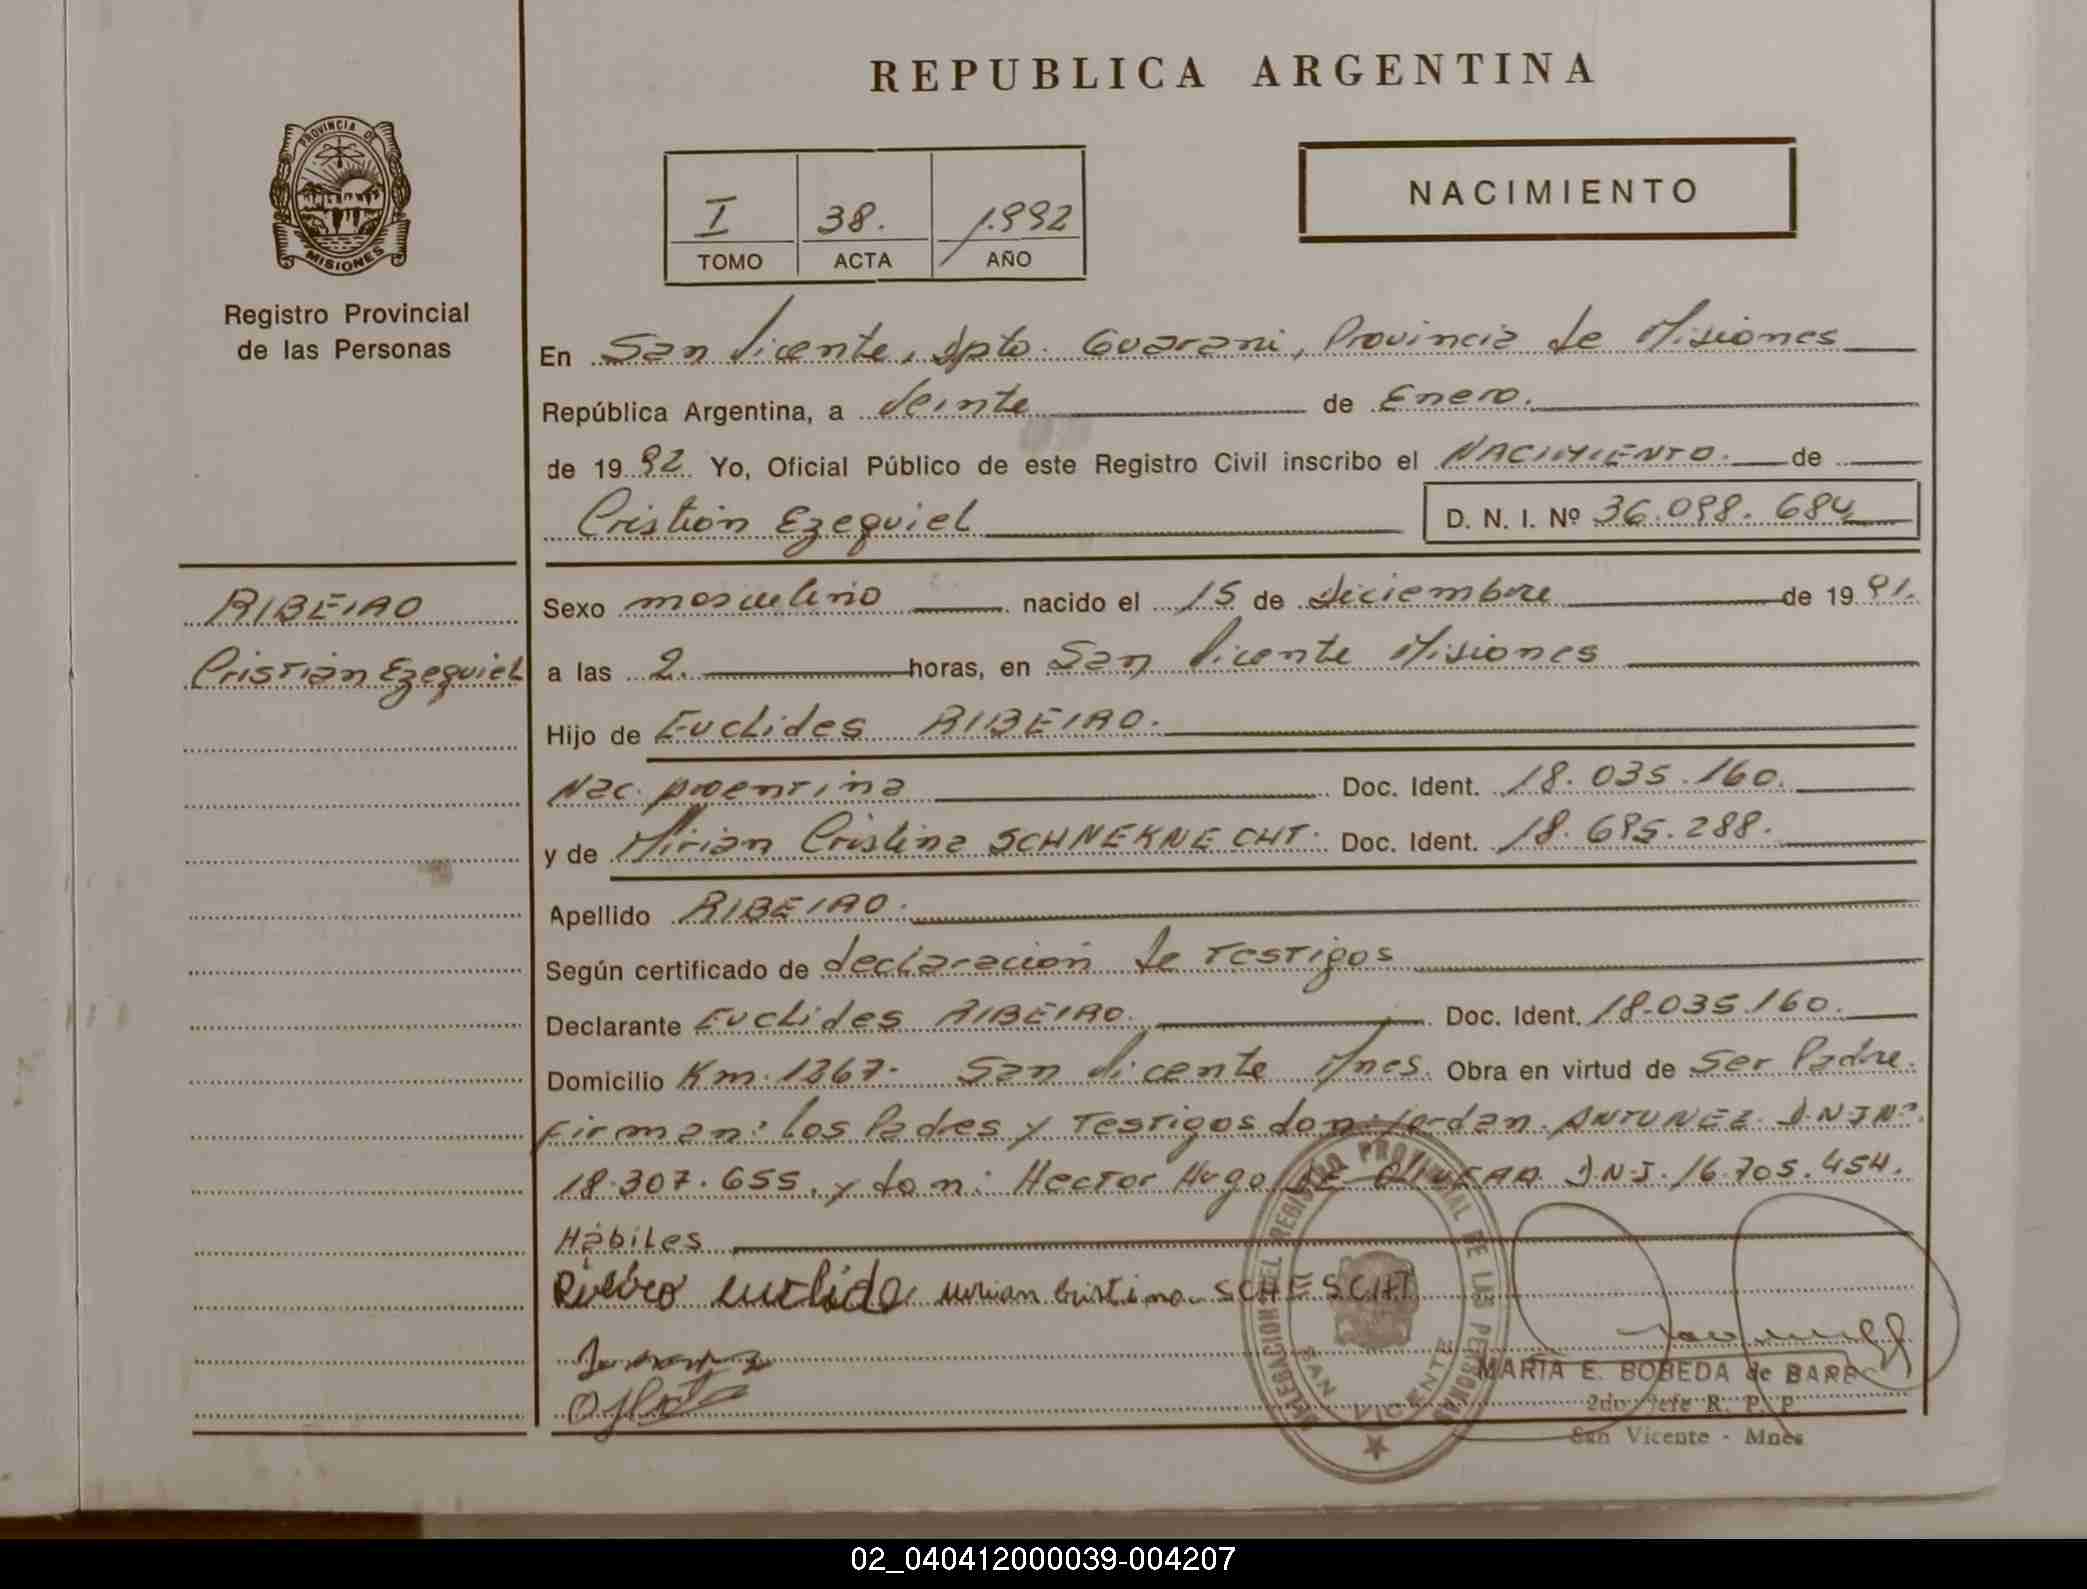 REPUBLICA ARGENTINA
PROVINCIA DE
MISIONES
Registro Provincial
de las Personas
I 38. 1.992
TOMO ACTA AÑO
NACIMIENTO
En San Vicente, Dpto. Guarani, Provincia de Misiones
República Argentina, a Veinte de Enero.
de 1992. Yo, Oficial Público de este Registro Civil inscribo el NACIMIENTO. de
Cristián Ezequiel D. N. I. Nº 36.098.684
RIBEIRO
Cristián Ezequiel
Sexo masculino nacido el 15 de diciembre de 1991.
a las 2. horas, en San Vicente Misiones
Hijo de Euclides RIBEIRO.
Nac. argentina Doc. Ident. 18.035.160.
y de Mirian Cristina SCHNEKNECHT. Doc. Ident. 18.695.288.
Apellido RIBEIRO.
Según certificado de declaración de Testigos
Declarante Euclides RIBEIRO. Doc. Ident. 18.035.160.
Domicilio Km. 1267. San Vicente Mnes. Obra en virtud de Ser Padre.
Firman: Los Padres y Testigos don: Jordan ANTUNEZ D.N.I Nº
18.307.655. y don: Hector Hugo DE OLIVEIRA D.N.I. 16.705.454.
Hábiles
Euclide Mirian Cristina SCHESCHT
DELEGACION DEL REGISTRO PROVINCIAL DE LAS PERSONAS
SAN VICENTE
MARIA E. BOBEDA de BARE
2do Jefe R. P. P.
San Vicente - Mnes
02_040412000039-004207